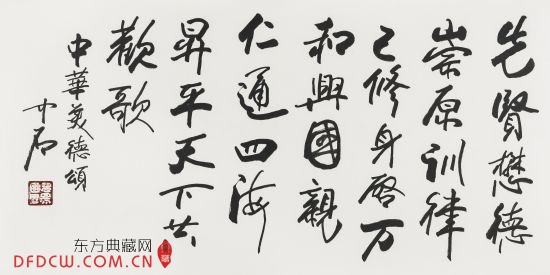 先賢懋德
崇原訓律
己修身啓万
和興國親
仁通四海
昇平天下共
歡歌
中華美德頌
中石
东方典藏网
DFDCW.COM.CN